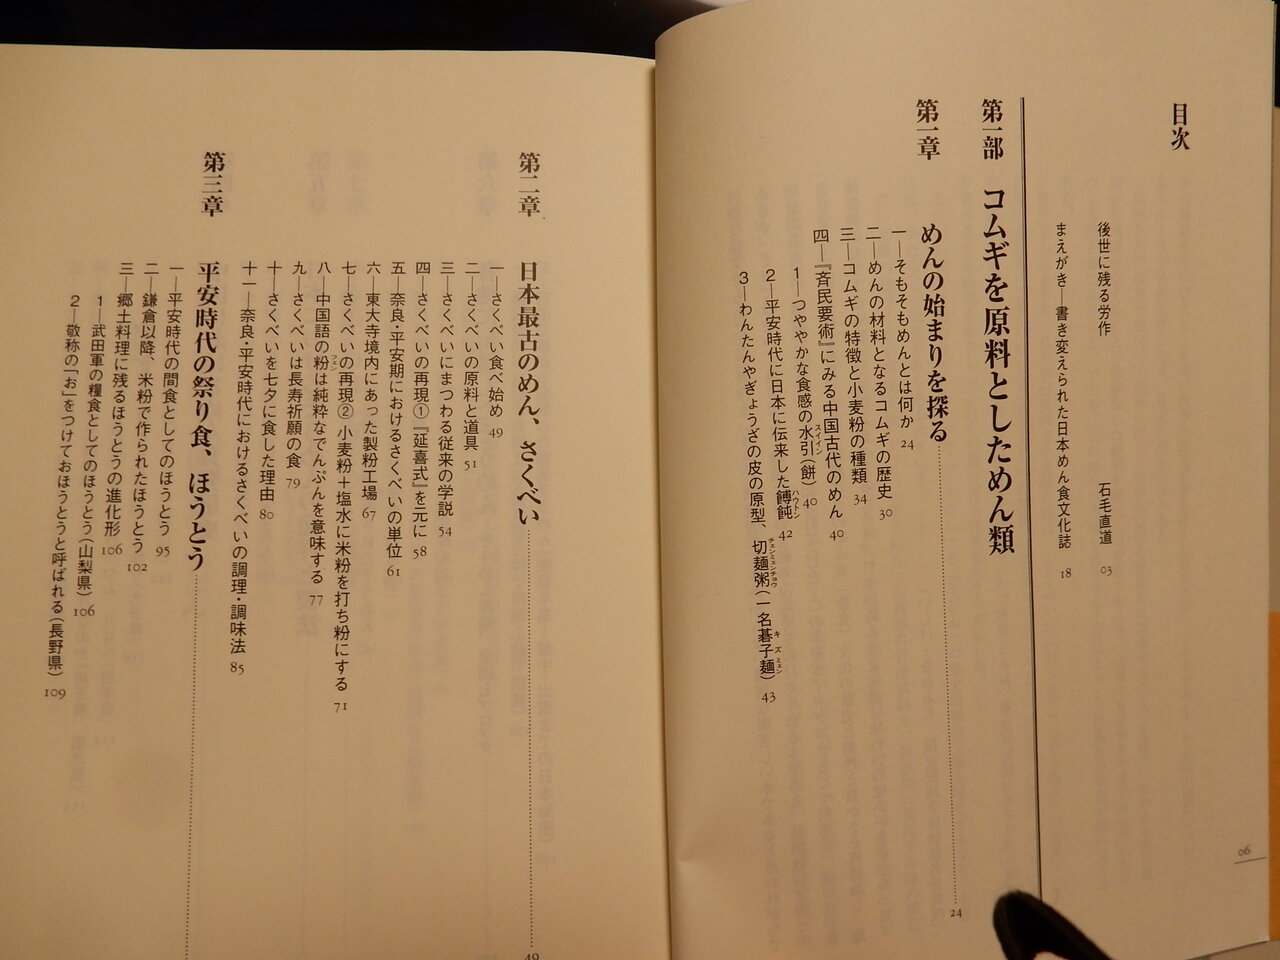 目次
後世に残る労作 石毛直道 03
まえがき―書き変えられた日本めん食文化誌 18
第一部 コムギを原料としためん類
第一章 めんの始まりを探る 24
一―そもそもめんとは何か 24
二―めんの材料となるコムギの歴史 30
三―コムギの特徴と小麦粉の種類 34
四―『斉民要術』にみる中国古代のめん 40
1―つややかな食感の水引(餅) 40
スイイン
2―平安時代に日本に伝来した餺飩 42
ハウトン
3―わんたんやぎょうざの皮の原型、切麺粥(一名碁子麺) 43
チェンミェンチョウ
キズミェン
06
第二章 日本最古のめん、さくべい 49
一―さくべい食べ始め 49
二―さくべいの原料と道具 51
三―さくべいにまつわる従来の学説 54
四―さくべいの再現① 『延喜式』を元に 58
五―奈良・平安期におけるさくべいの単位 61
六―東大寺境内にあった製粉工場 67
七―さくべいの再現② 小麦粉+塩水に米粉を打ち粉にする 71
八―中国語の粉は純粋なでんぷんを意味する 77
フェン
九―さくべいは長寿祈願の食 79
十―さくべいを七夕に食した理由 80
十一―奈良・平安時代におけるさくべいの調理・調味法 85
第三章 平安時代の祭り食、ほうとう
一―平安時代の間食としてのほうとう 95
二―鎌倉以降、米粉で作られたほうとう 102
三―郷土料理に残るほうとうの進化形 106
1―武田軍の糧食としてのほうとう(山梨県) 106
2―敬称の「お」をつけておほうとうと呼ばれる(長野県) 109